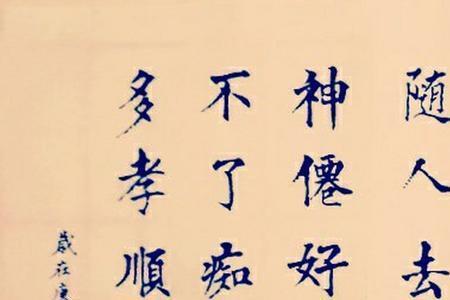 随人去
神僊好
不了痴
多孝順
歲在